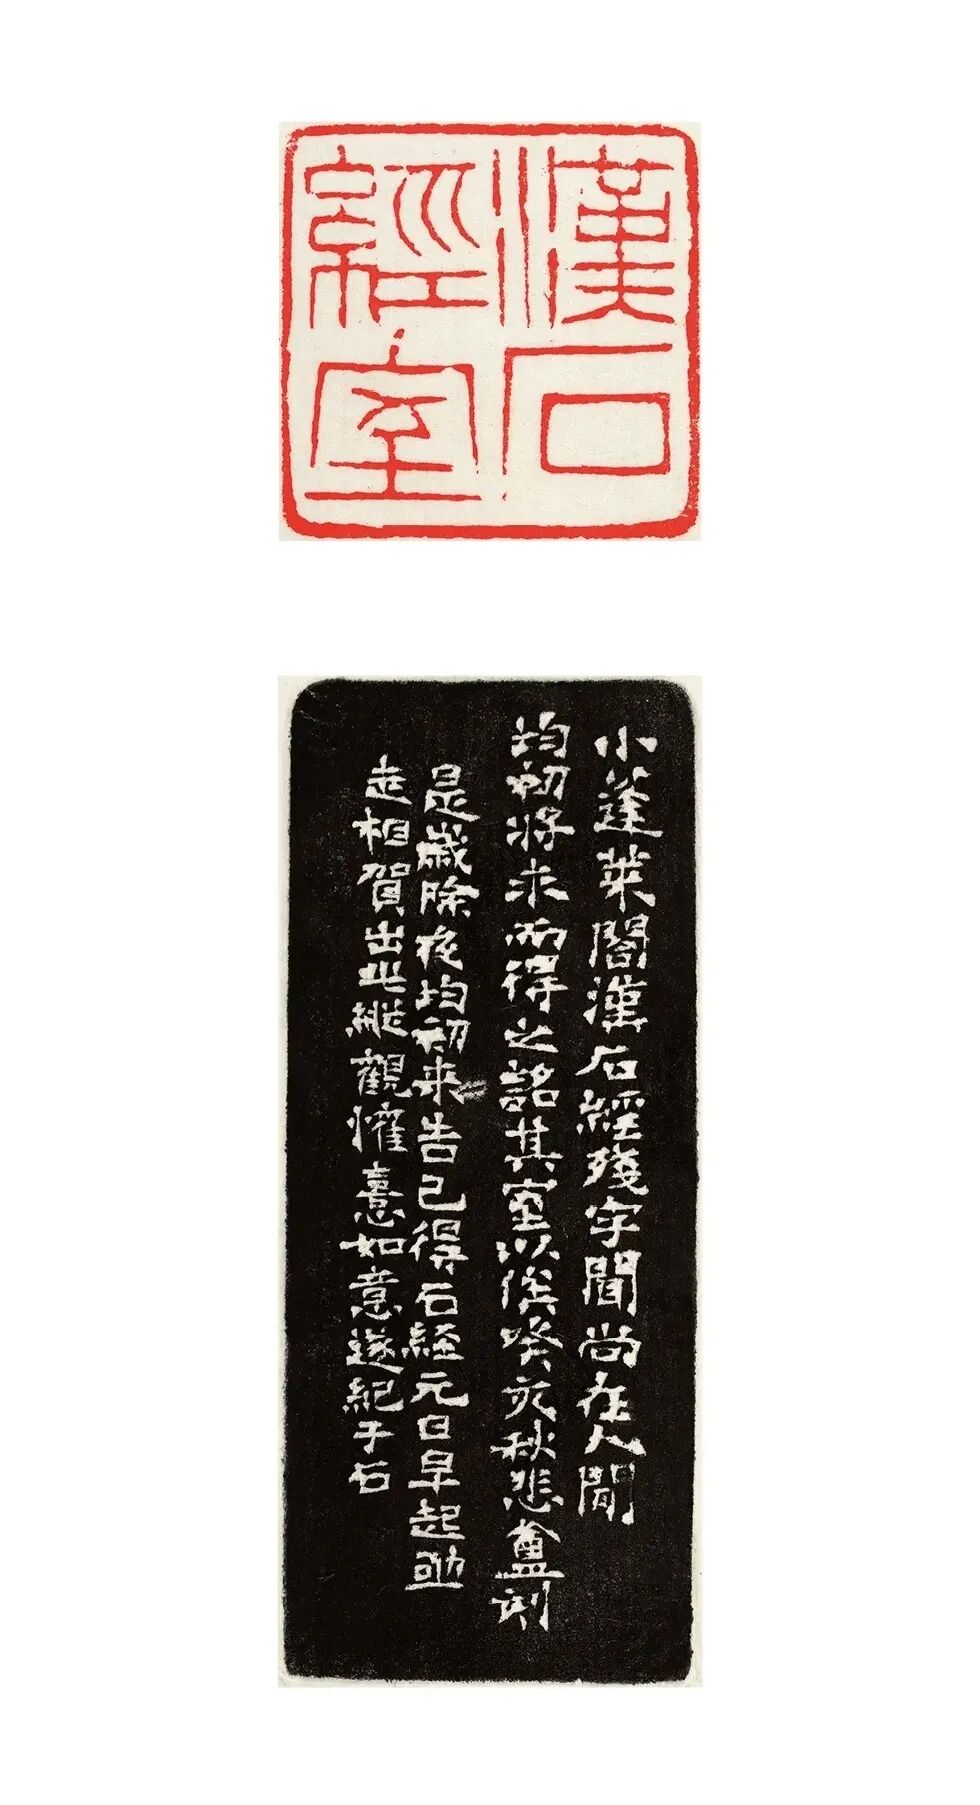 漢石
經室
小蓬萊閣漢石經殘字聞尚在人間
均初將求而得之詺其室以俟癸亥秋悲盦刻
是歲除夜均初來告已得石經元日早起亟
走相賀出此縱觀懽憙如意遂紀于石